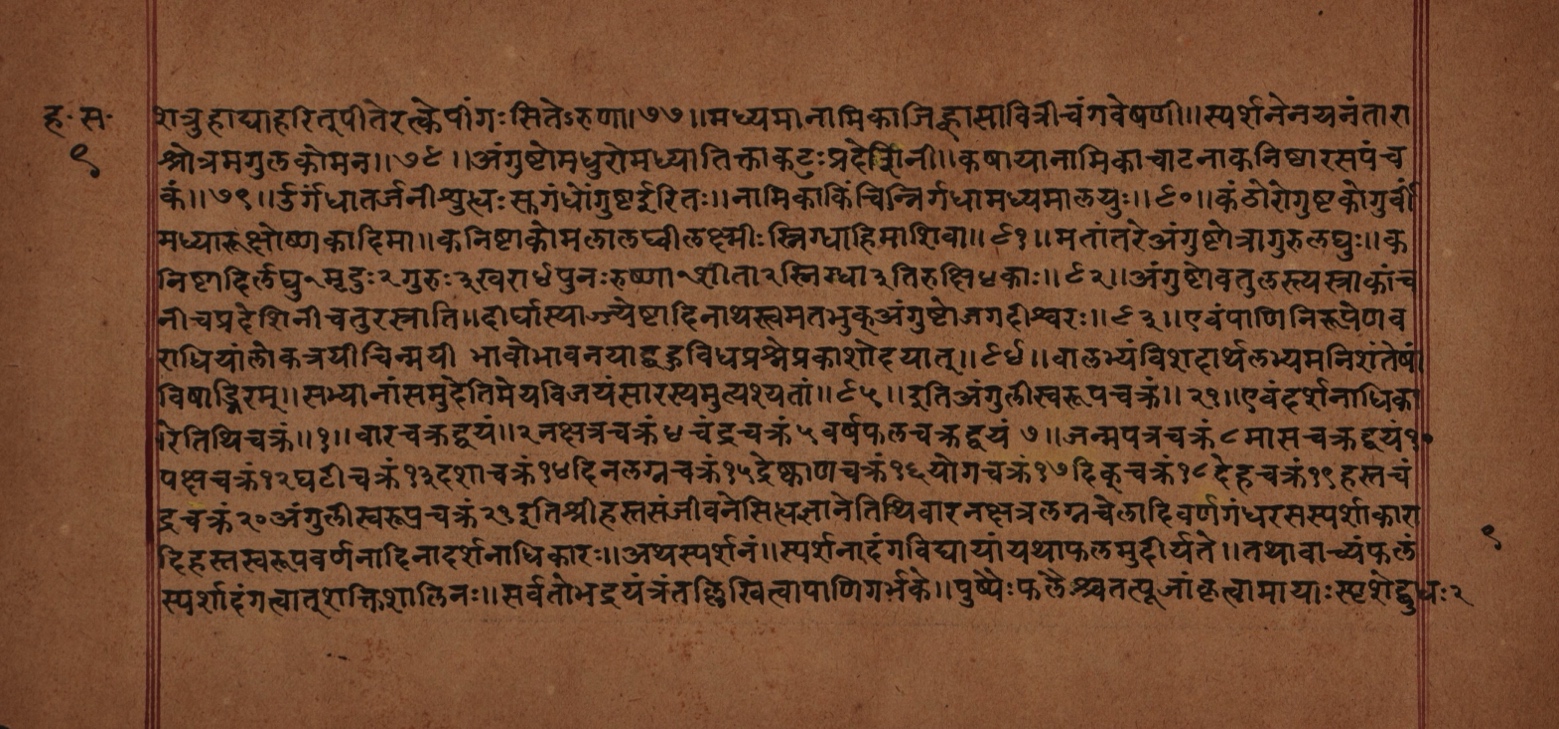 ह॰ स॰ शत्रुहाद्याहरित्पीतेरत्केपींगःसितेऽरुणा॥७७॥मध्यमानामिकाजिह्वासावित्रीचंगवेषणी॥स्पर्शनेनयनंतारा
९ श्रोत्रमगुलकोमन॥७८॥अंगुष्टोमधुरोमध्यातिक्ताकटुःप्रदेशिनी॥कषायानामिकाचाटनाकनिष्टारसपंच
कं॥७९॥र्दुर्गंधातर्जनीश्युत्यःसुगंधोंगुष्टर्दूरितः॥नामिकाकिंचिन्निर्गधामध्यमालयुः॥८०॥कंठोरोगुष्टकोगुर्वी
मध्यारूक्षोष्णकाहिमा॥कनिष्टाकोमलालघ्वीलक्ष्मीःस्निग्धाहिमाशिवा॥८१॥मतांतरेअंगुष्टोत्रागुरुलघुः॥क
निष्टादिर्लघु१मृदुः२गुरुः३खरा४पुनःरुष्णा१शीता२स्निग्धा३तिरुक्षि४काः॥८२॥अंगुष्टोवतुलस्त्यस्त्राकांच
नीचप्रदेशिनीचतुरस्त्राति॥दीर्घास्याज्ज्येष्टादिनाथस्त्वमतभुक्अंगुष्टोजगदीश्वरः॥८३॥एवंपाणिनिरूप्रेणव
राधियांलोकत्रयीचिन्मयी भावोभावनयाद्बहुविधप्रश्नेप्रकाशोदयात्॥८४॥वालभ्यंविशदार्थलभ्यमनिशंतेषां
विषाद्गिरम्॥सभ्यानांसमुदेतिमेयविजयंसारस्यमुत्पश्यतां॥८५॥इतिअंगुलीस्वरूपचक्रं॥२१॥एवंदर्शनाधिका
रेतिथिचक्रं॥१॥वारचक्रद्वयं॥२नक्षत्रचक्रं४चंद्रचक्रं५वर्षफलचक्रद्वयं ७॥जन्मपत्रचक्रं८मासचक्रद्वयं१०
पक्षचक्रं१२घटीचक्रं१३दशाचक्रं१४दिनलग्नचक्रं१५द्रेष्काणचक्रं१६योगचक्रं१७दिक्चक्रं१८देहचक्रं१९हस्तचं
द्रचक्रं२०अंगुलीस्वरूप्रचक्रं२१इतिश्रीहस्तसंजीवनेसित्धज्ञानेतिथिवारनक्षत्रलग्नचेलादिवर्णगंधरसस्पर्शाकारा
दिहस्तस्वरूपवर्णनादिनादर्शनाधिकारः॥अथस्पर्शनं॥स्पर्शनादंगविद्यायांयथाफलमुदीर्यते॥तथावाच्यंफलं ९
स्पर्शादंगत्वात्शक्तिशालिनः॥सर्वतोभद्रयंत्रंतल्लिखित्वापाणिगर्भके॥पुष्पैःफलैश्चतत्पूजांकृत्वामायाःस्पृशेद्बुधः२